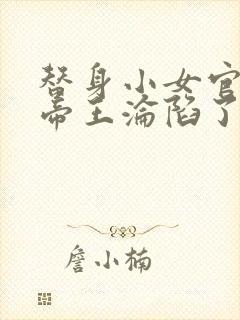 替身小女官
帝王沦陷了
詹小楠